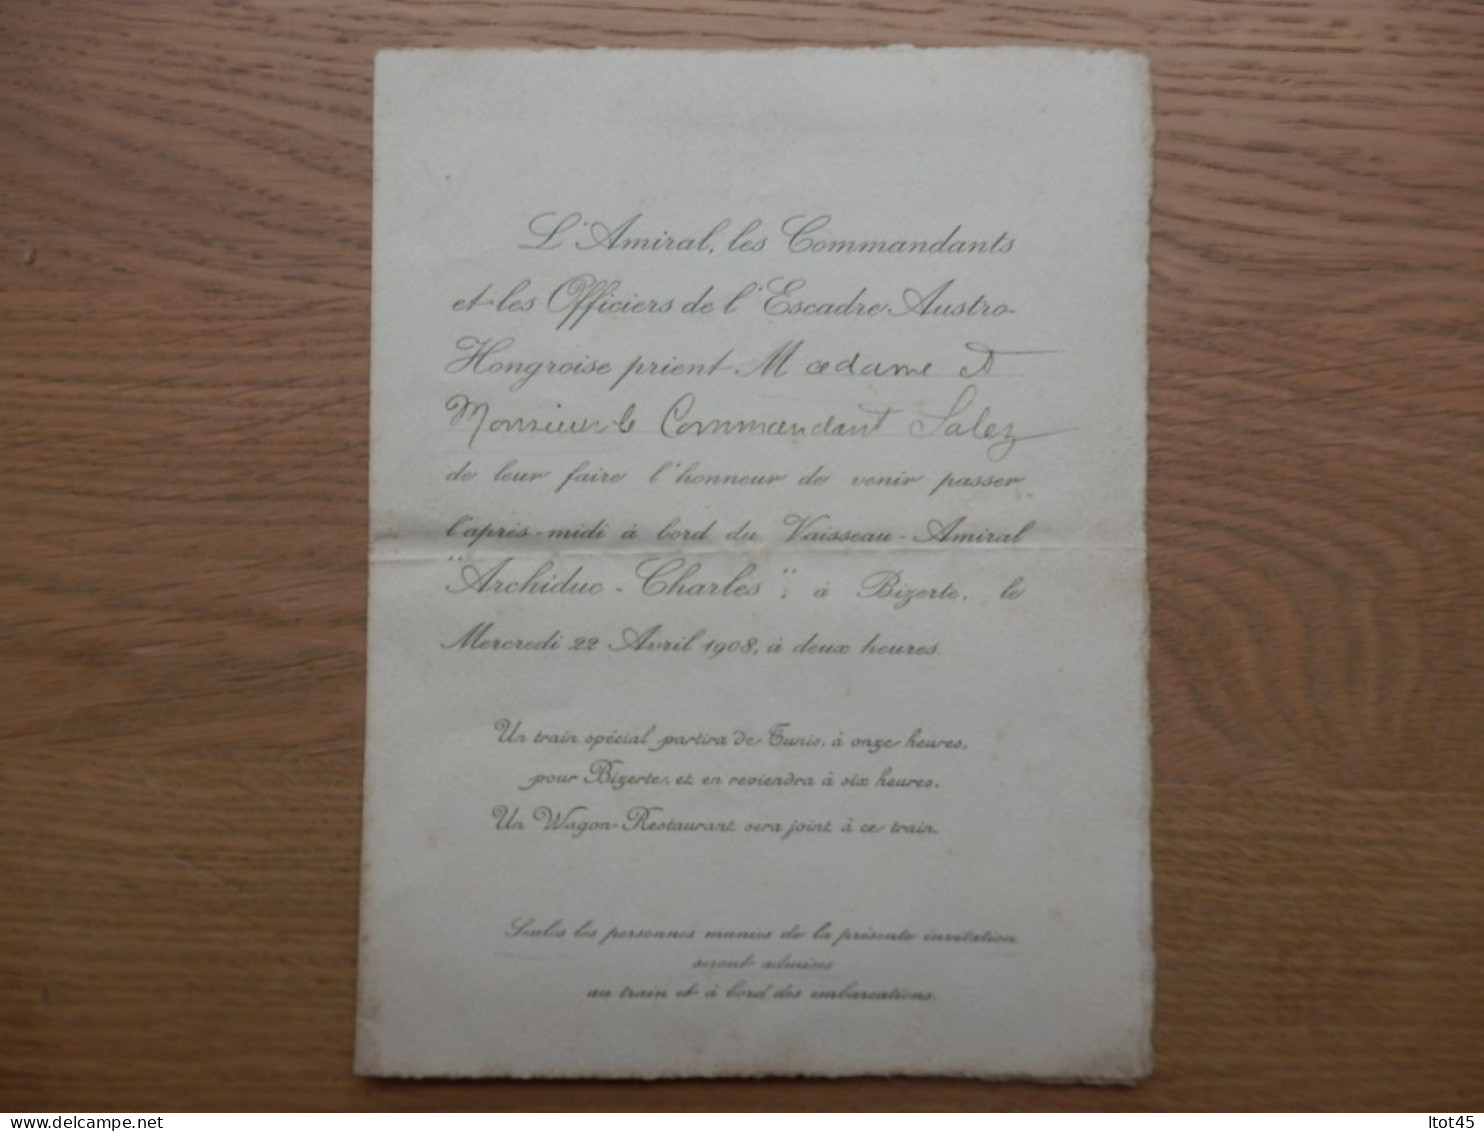 L'Amiral, les Commandants
et les Officiers de l'Escadre Austro-
Hongroise prient Madame et
Monsieur le Commandant Salez
de leur faire l'honneur de venir passer
l'après-midi à bord du Vaisseau-Amiral
"Archiduc-Charles", à Bizerte, le
Mercredi 22 Avril 1908, à deux heures.
Un train spécial partira de Tunis, à onze heures,
pour Bizerte, et en reviendra à six heures.
Un Wagon-Restaurant sera joint à ce train.
Seules les personnes munies de la présente invitation
seront admises
au train et à bord des embarcations.
delcampe.net
ltot45